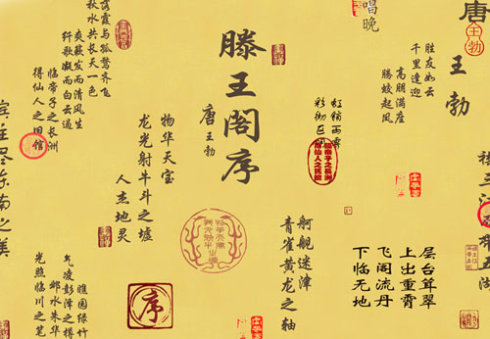 唐
王勃
王勃
胜友如云
千里逢迎
高朋满座
腾蛟起凤
唱晚
三江
五湖
层台耸翠
上出重霄
飞阁流丹
下临无地
虹销雨霁
彩彻区
舸舰迷津
青雀黄龙之轴
滕王阁序
唐王勃
物华天宝
龙光射牛斗之墟
人杰地灵
序
落霞与孤鹜齐飞
秋水共长天一色
爽籁发而清风生
纤歌凝而白云遏
临帝子之长洲
得仙人之旧馆
睢园绿竹
气凌彭泽之樽
邺水朱华
光照临川之笔
宾主尽东南之美